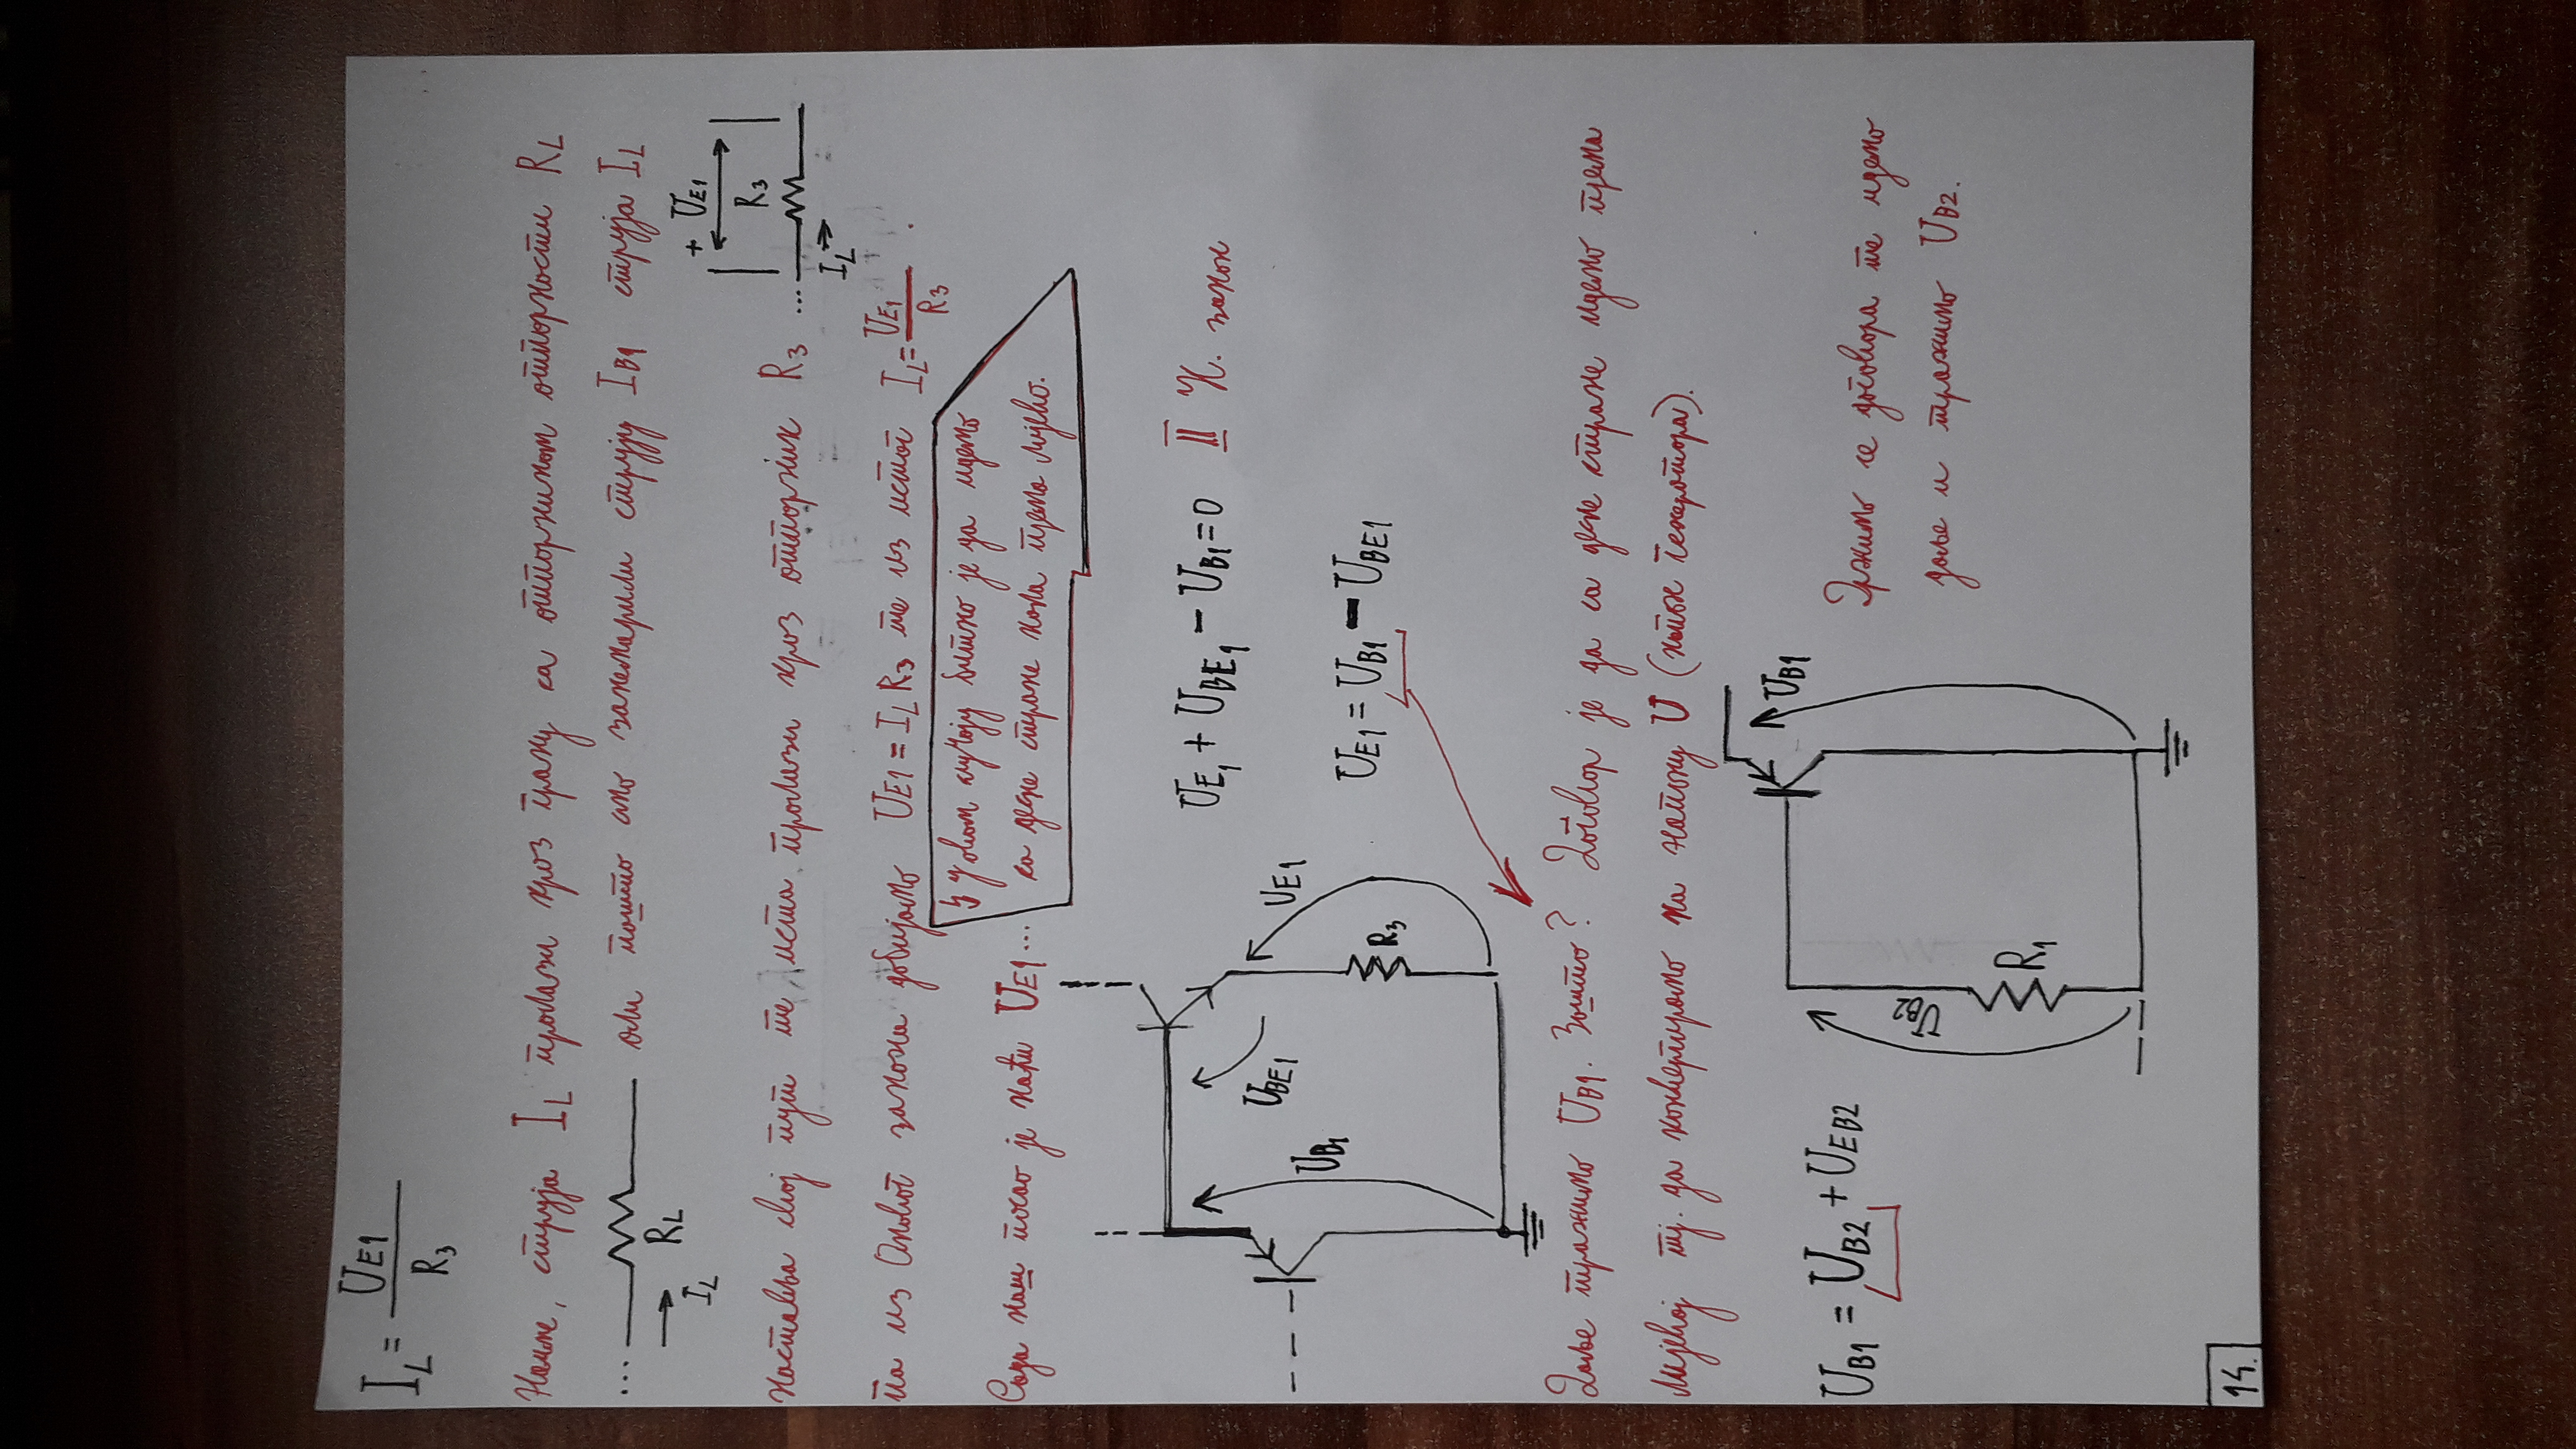 I_L = U_E1 / R_3
Наиме, струја I_L пролази кроз грану са отпорником отпорности R_L
... R_L али пошто смо занемарили струју I_B1 струја I_L
I_L
+ U_E1
R_3
наставља свој пут те иста пролази кроз отпорник R_3 ...
I_L
па из Омовог закона добијамо U_E1 = I_L R_3 те из истог I_L = U_E1 / R_3 .
У овом случају битно је да идемо
са десне стране кола према лијево.
Сада наш посао је наћи U_E1 ...
U_E1 + U_BE1 - U_B1 = 0 II К. закон
U_BE1
U_E1
U_B1
R_3
U_E1 = U_B1 - U_BE1
Даље тражимо U_B1. Зашто? Договор је да са десне стране идемо према
лијевој тј. да конвертирамо ка напону U (напон генератора).
U_B1
U_B1 = U_B2 + U_EB2
U_B2
R_1
Држимо се договора те идемо
даље и тражимо U_B2.
14.